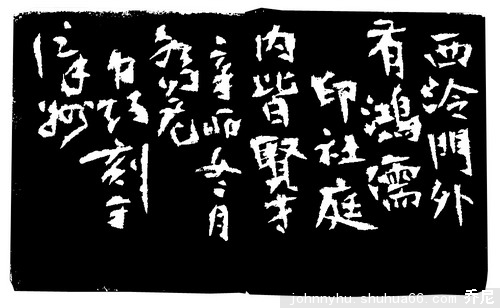 西泠門外
有鴻儒
印社庭
内皆賢才
辛卯冬月
刻于
州
johnnyhu.shuhua66.com 乔尼